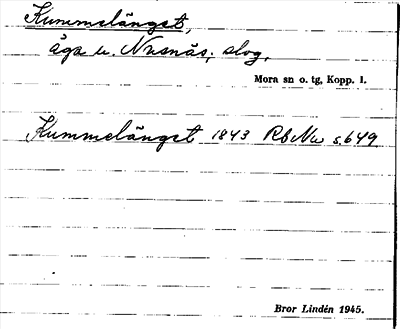 Kummelängst,
äga u. Nusnäs; skog,
Mora sn o. tg, Kopp. l.
Kummelängst 1843 Rb Nu s. 649
Bror Lindén 1945.